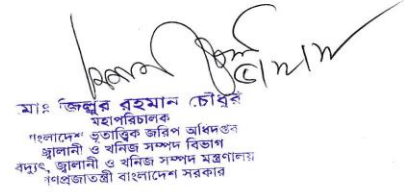 মোঃ জিল্লুর রহমান চৌধুরী
মহাপরিচালক
বাংলাদেশ ভূতাত্ত্বিক জরিপ অধিদপ্তর
জ্বালানী ও খনিজ সম্পদ বিভাগ
বিদ্যুৎ, জ্বালানী ও খনিজ সম্পদ মন্ত্রণালয়
গণপ্রজাতন্ত্রী বাংলাদেশ সরকার